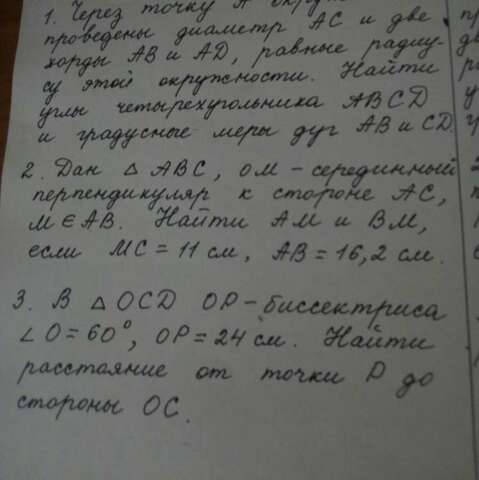 1. Через точку А
проведены диаметр АС и две
хорды АВ и АD, равные радиу-
су этой окружности. Найти
углы четырехугольника АВСD
и градусные меры дуг АВ и СD.
2. Дан △ АВС, ОМ – серединный
перпендикуляр к стороне АС,
М ∈ АВ. Найти АМ и ВМ,
если МС = 11 см, АВ = 16,2 см.
3. В △ OCD OP – биссектриса
∠O = 60°, OP = 24 см. Найти
расстояние от точки P до
стороны OC.